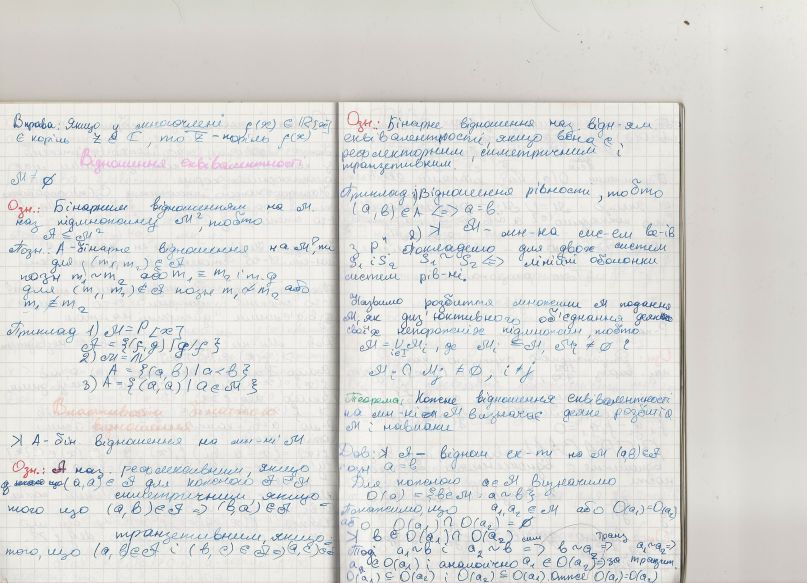 Вправа: Якщо у многочлені f(x) ∈ ℝ[x]
є корінь z ∈ ℂ, то z̅ - корінь f(x)
Відношення еквівалентності
M ≠ ∅
Озн.: Бінарним відношенням на M
наз підмножину M², тобто
A ⊆ M²
Позн.: A - бінарне відношення на M², то
для (m₁, m₂) ∈ A
позн m₁ ~ m₂ або m₁ ≡ m₂ і т.д
для (m₁, m₂) ∉ A позн m₁ ≁ m₂ або
m₁ ≢ m₂
Приклад 1) M = P[x]
A = {(f, g) | g/f}
2) M = ℕ
A = {(a, b) | a < b}
3) A = {(a, a) | a ∈ M}
Властивості бінарного
відношення
> A - бін відношення на мн-ні M
Озн.: A наз. рефлексивним, якщо
(a, a) ∈ A для кожного a ∈ M
симетричним, якщо
того що (a, b) ∈ A => (b, a) ∈ A
транзетивним, якщо
того, що (a, b) ∈ A і (b, c) ∈ A => (a, c) ∈
Озн.: Бінарне відношення наз. відн-ям
еквівалентності, якщо вона є
рефлекторним, симетричним і
транзетивним.
Приклад 1) Відношення рівности, тобто
(a, b) ∈ A <=> a = b.
2) > M - мн-на сис-ем
з Pⁿ. Покладемо для двох систем
S₁ і S₂ S₁ ~ S₂ <=> лінійні оболонки
систем рів-ні.
Назвемо розбиття множини M подання
M, як диз'юктивного об'єднання деяких
своїх непорожніх підмножин, тобто
M = ∪ Mᵢ, де Mᵢ ⊆ M, Mᵢ ≠ ∅ і
i∈I
Mᵢ ∩ Mⱼ ≠ ∅, i ≠ j
Теорема: Кожне відношення еквівалентності
на мн-ні M визначає деяке розбиття
M і навпаки
Дов: > A - віднош ек-ти на M (a,b) ∈ A
позн a = b.
Для кожного a ∈ M визначимо
O(a) = {b ∈ M : a ~ b}
Покажемо, що a₁, a₂ ∈ M або O(a₁) = O(a₂)
або O(a₁) ∩ O(a₂) = ∅
> b ∈ O(a₁) ∩ O(a₂) сим транз
Тоді a₁ ~ b і a₂ ~ b => b ~ a₂ => a₁ ~ a₂ =>
a₂ ∈ O(a₁) і аналогічно a₁ ∈ O(a₂) => за транзит.
O(a₁) ⊆ O(a₂) і O(a₂) ⊆ O(a₁). Отже O(a₁) = O(a₂)